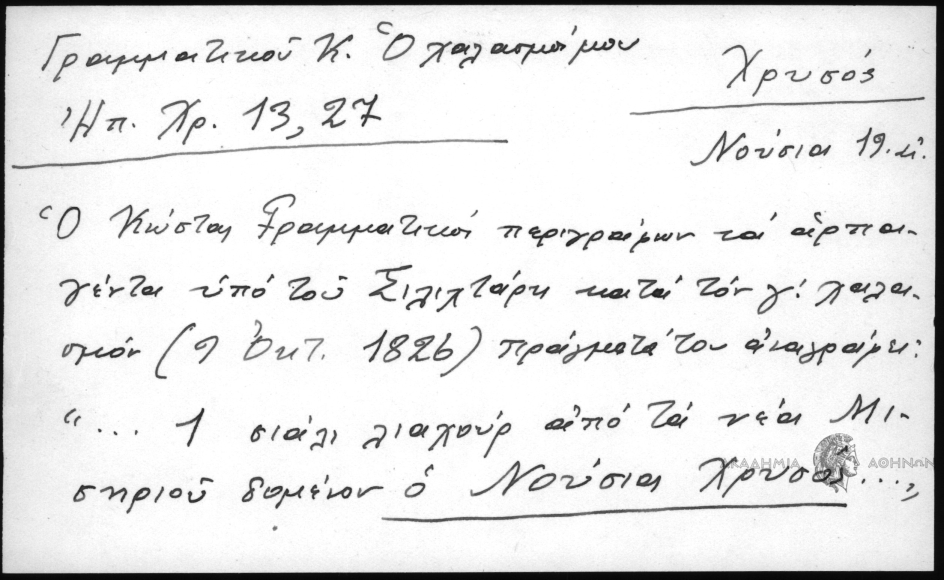 Γραμματικοῦ Κ. Ὁ χαλασμός μου
Ἠπ. Χρ. 13, 27
Χρυσός
Νούσιας 19. αἰ.
Ὁ Κώστας Γραμματικός περιγράφων τά ἁρπα-
γέντα ὑπό τοῦ Σιλιχτάρη κατά τόν γ! χαλα-
σμόν (9 Ὀκτ. 1826) πράγματά του ἀναγράφει:
"... 1 σιάλι λιαχούρ ἀπό τά νέα Μι-
σηριοῦ δομένον ὁ Νούσιας Χρυσός...,,
ΑΚΑΔΗΜΙΑ ΑΘΗΝΩΝ